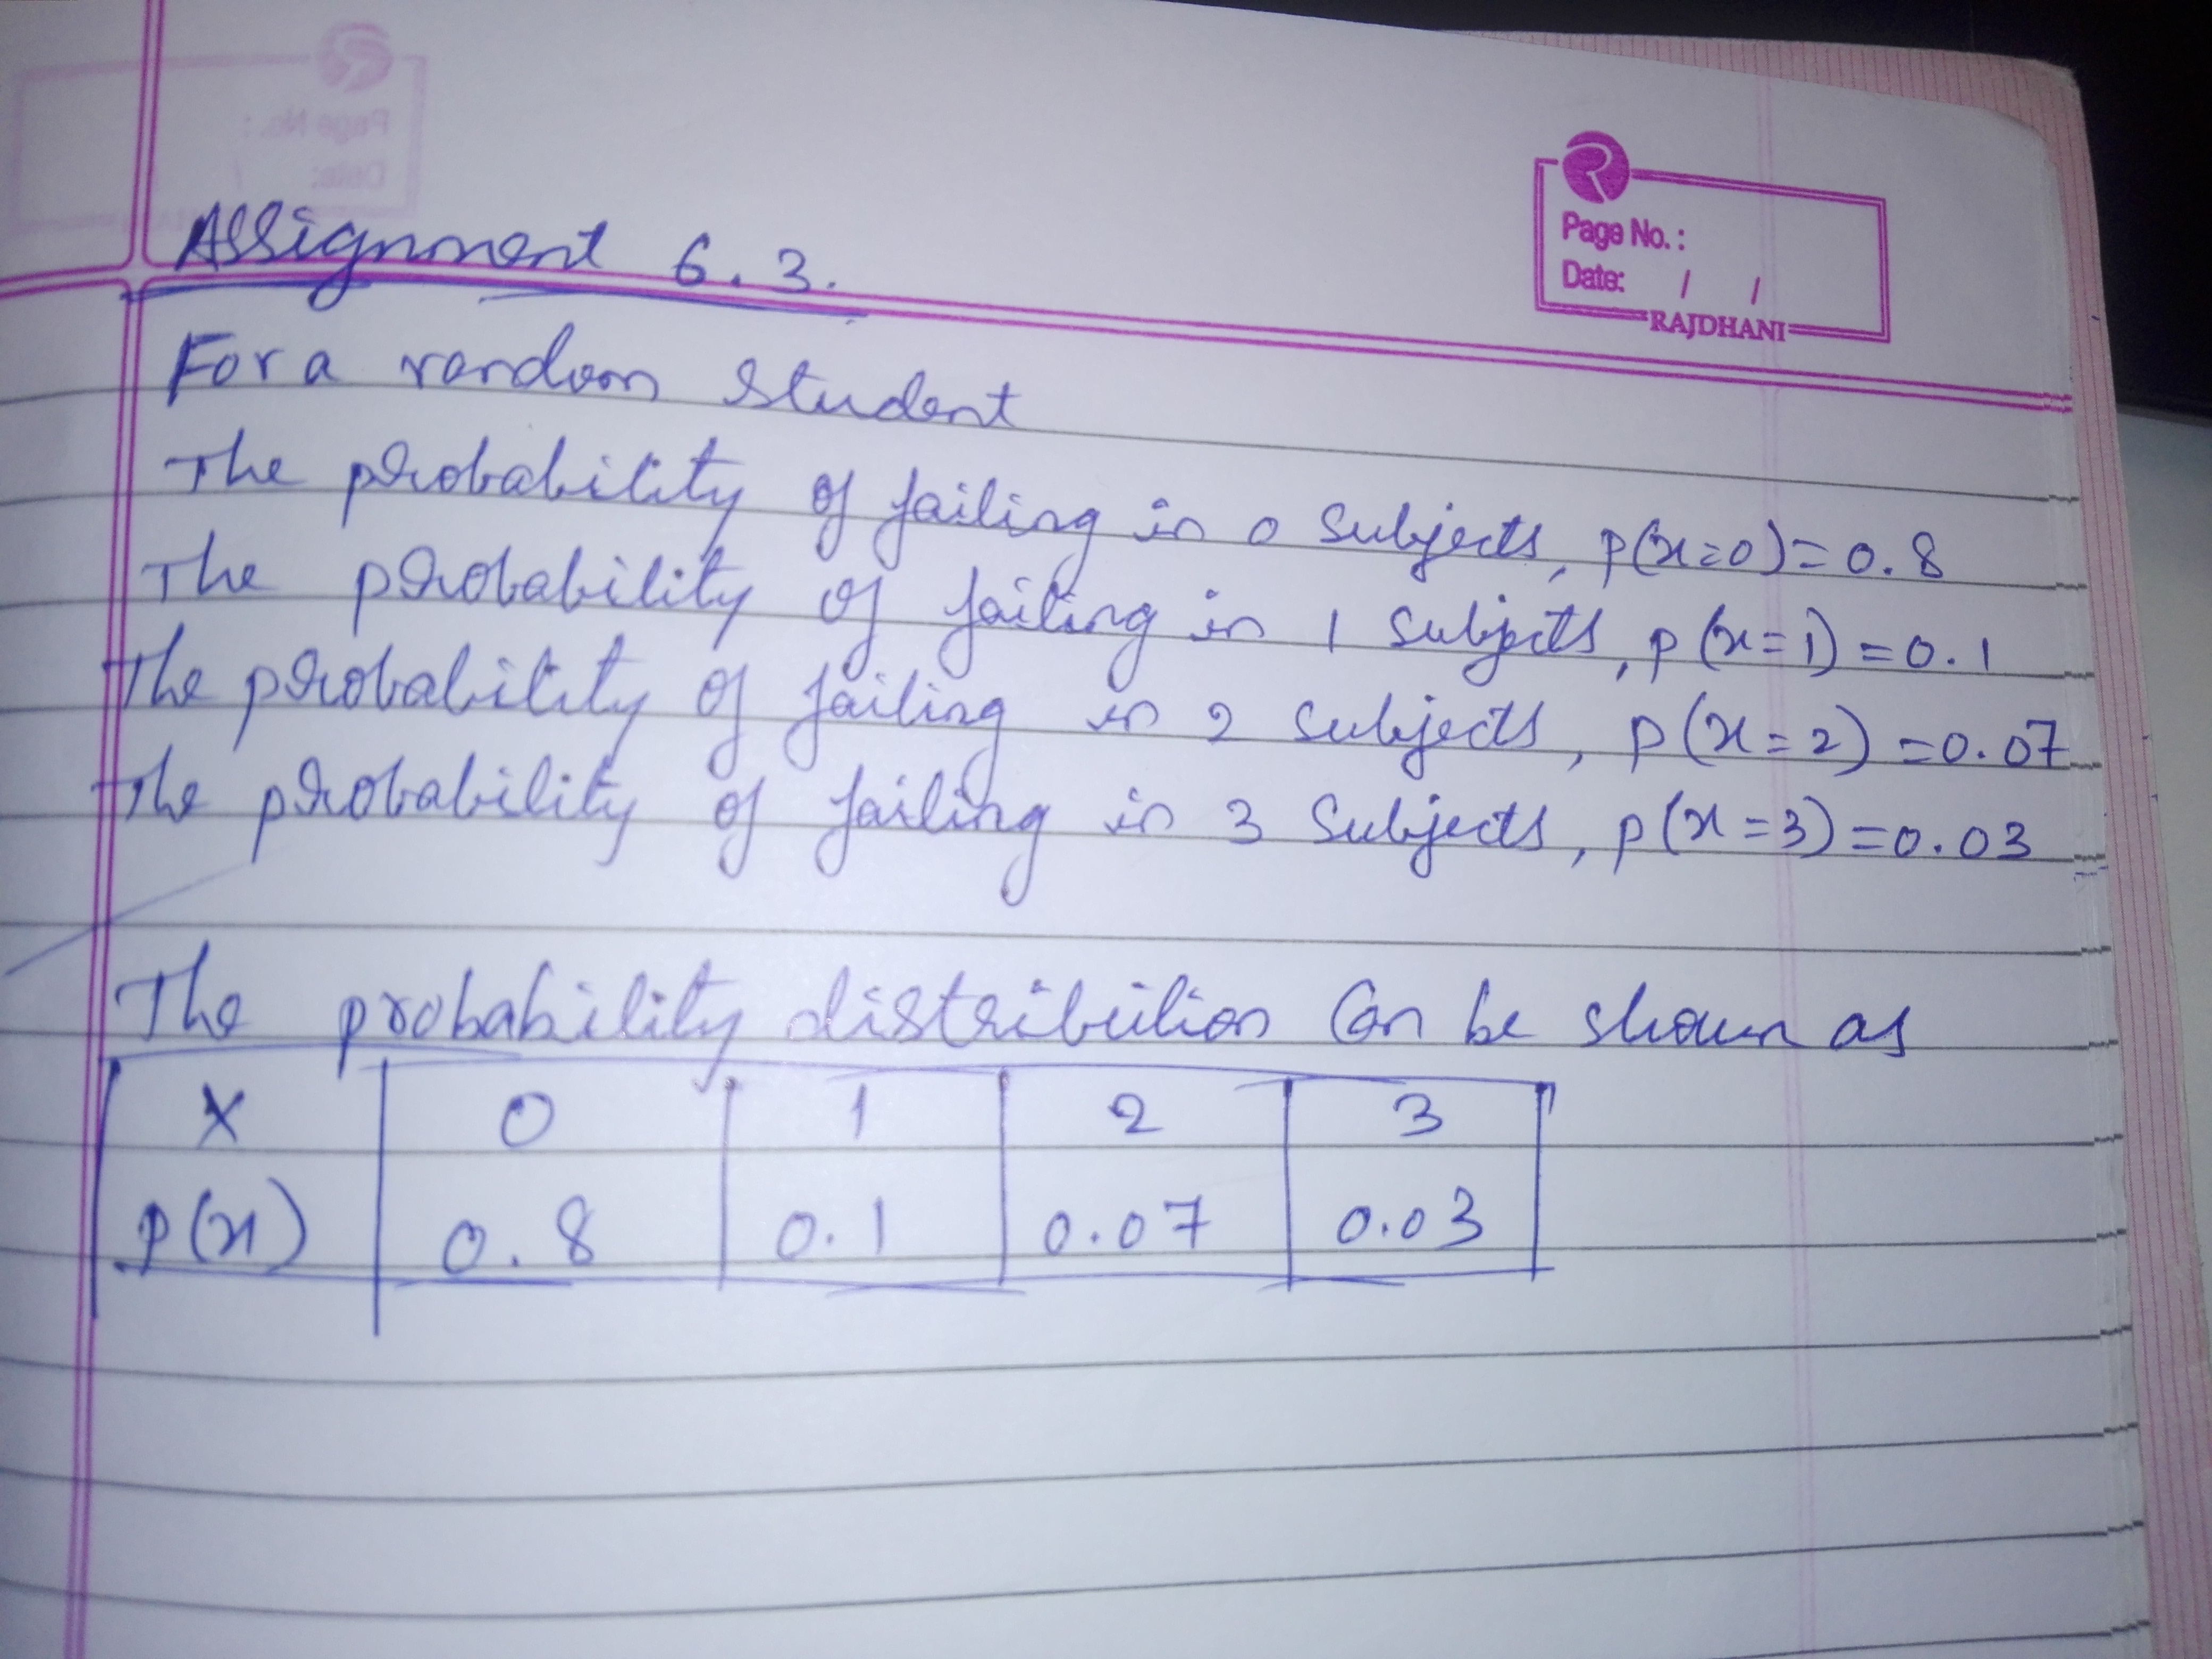 Page No. :
Date: / /
RAJDHANI
Assignment 6.3.
For a random student
The probability of failing in 0 subjects, p(x=0)=0.8
The probability of failing in 1 subjects, p(x=1)=0.1
The probability of failing in 2 subjects, p(x=2)=0.07
The probability of failing in 3 subjects, p(x=3)=0.03
The probability distribution can be shown as
X 0 1 2 3
p(x) 0.8 0.1 0.07 0.03